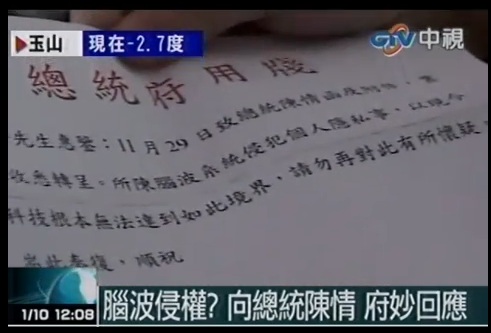 玉山
現在-2.7度
CTV中視
總統府用牋
先生惠鑒：11月29日致總統陳情函及附件
收悉轉呈。所陳腦波系統侵犯個人隱私事，以現今
科技根本無法達到如此境界，請勿再對此有所懷疑
耑此奉復，順祝
1/10 12:08
腦波侵權? 向總統陳情 府妙回應